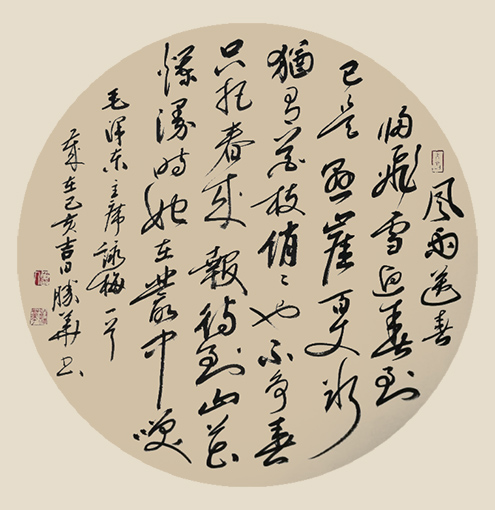 風雨送春
歸飛雪迎春到
已是懸崖百丈冰
猶有花枝俏〻也不争春
只把春來報待到山花
爛漫時她在叢中咲
毛澤東主席詠梅一首
歲在己亥吉日勝華書